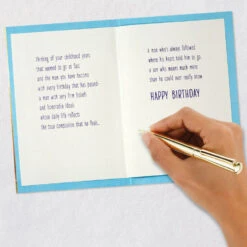 Thinking of your childhood years
that seemed to go so fast,
and the man you have become
with every birthday that has passed...
a man with very firm beliefs
and honorable ideals
whose daily life reflects
the true compassion that he feels...
a man who's always followed
where his heart told him to go
a son who means much more
than he could ever really know.
HAPPY BIRTHDAY